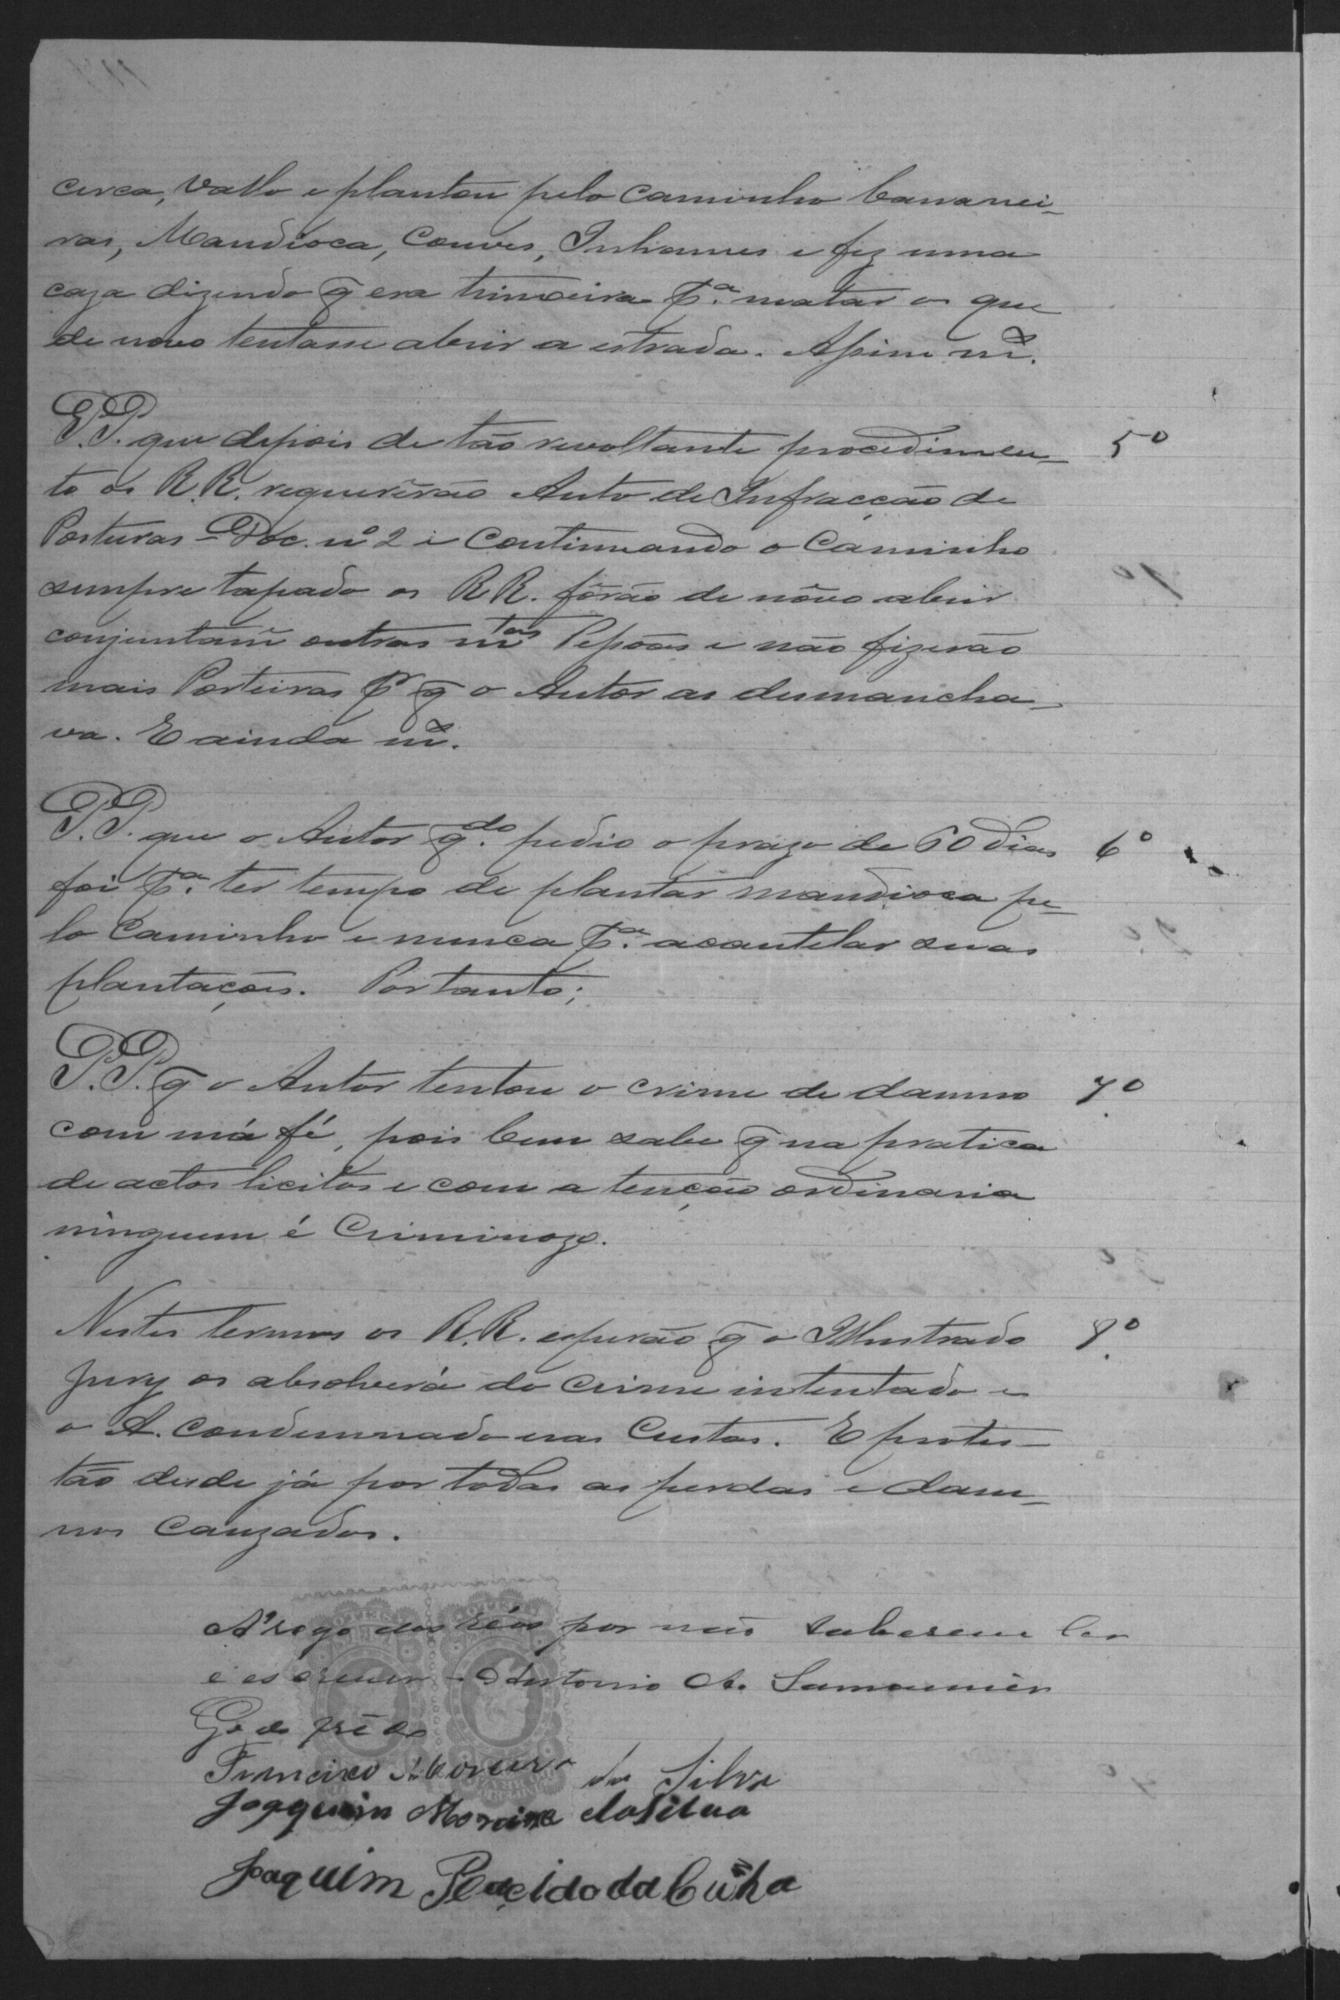 cerca, Vallo e plantou pelo Caminho bananei-
ras, Mandioca, Couves, Inhames e fez uma
caza dizendo q̃ era trinceira p.ª matar os que
de novo tentasse abrir a estrada. Assim m̃.
P.P. que depois de tão revoltante procedimen- 5º
to os R.R. requererão Auto de Infracção de
Posturas - Doc. nº 2 e Continuando o Caminho
sempre tapado os R R. fôrão de nôvo abrir
conjuntam̃ outras m.tas Pessôas e não fizerão
mais Porteiras p.r q̃ o Autor as desmancha-
va. E ainda m̃.
P.P. que o Autor q.do pedio o prazo de 60 Dias 6º
foi p.ª ter tempo de plantar mandioca pe-
lo Caminho e nunca p.ª acautelar suas
plantações. Portanto;
P.P. q̃ o Autor tentou o crime de damno 7º
com má fé, pois bem sabe q̃ na pratica
de actos licitos e com a tenção ordinaria
ninguem é Criminozo.
Nestes termos os R.R. esperão q̃ o Illustrado 8º
Jury os absolverá do crime intentado e
o A. condemnado nas Custas. E protes-
tão desde já por todas as perdas e dam-
nos Cauzados.
A rogo dos réos por não saberem ler
e escrever - Antonio A. Samourier
Francisco Moreira da Silva
Joaquim Moreira da Silva
Joaquim Placido da Cunha